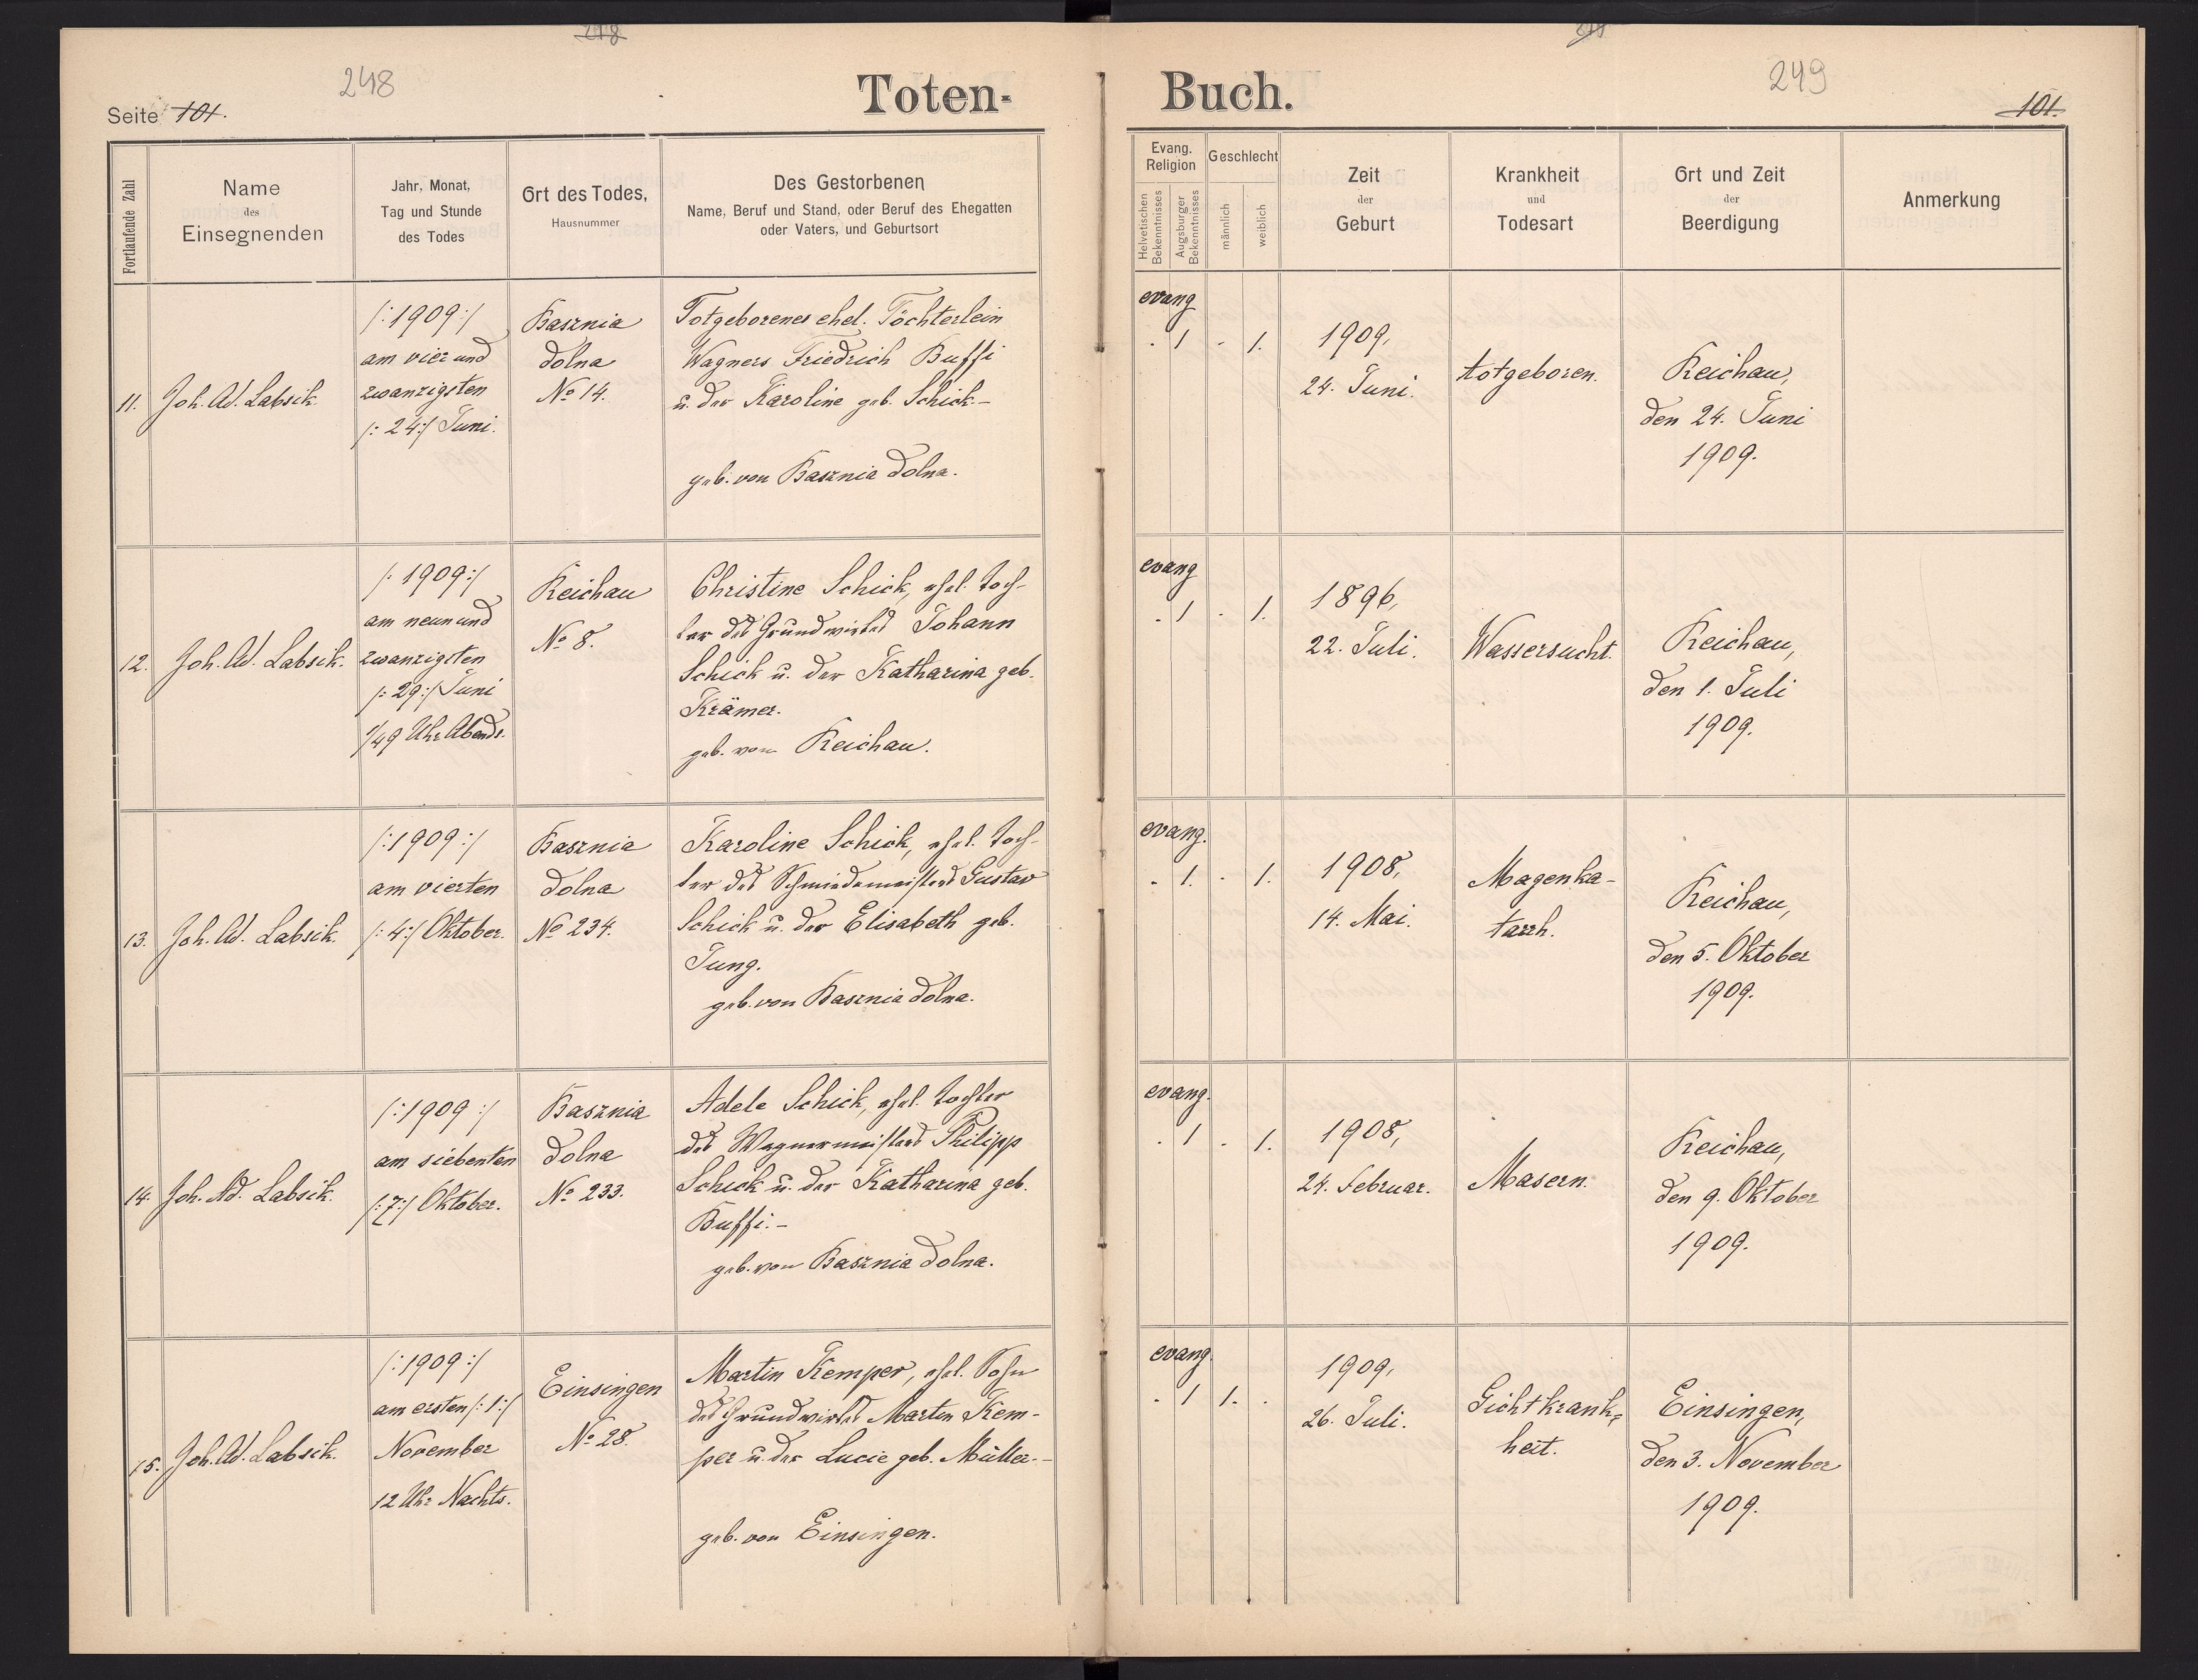 248
249
Seite 101.
Toten-
Buch.
101.
Fortlaufende Zahl
Name
des
Einsegnenden
Jahr, Monat,
Tag und Stunde
des Todes
Ort des Todes,
Hausnummer
Des Gestorbenen
Name, Beruf und Stand, oder Beruf des Ehegatten
oder Vaters, und Geburtsort
Evang.
Religion
Helvetischen
Bekenntnisses
Augsburger
Bekenntnisses
Geschlecht
männlich
weiblich
Zeit
der
Geburt
Krankheit
und
Todesart
Ort und Zeit
der
Beerdigung
Anmerkung
11.
Joh. Ad. Labsik.
/:1909:/
am vier und
zwanzigsten
/:24:/ Juni.
Basznia
dolna
No 14.
Totgeborenes ehel. Töchterlein
Wagners Friedrich Buffi
u. der Karoline geb. Schick-
geb. von Basznia dolna.
evang
. 1 . 1.
1909,
24. Juni.
totgeboren.
Reichau,
den 24. Juni
1909.
12.
Joh. Ad. Labsik.
/:1909:/
am neun und
zwanzigsten
/:29:/ Juni
1/49 Uhr Abends.
Reichau
No 8.
Christine Schick, ehel. Toch-
ter des Grundwirtes Johann
Schick u. der Katharina geb.
Krämer.
geb. von Reichau.
evang
. 1 . 1.
1896,
22. Juli.
Wassersucht.
Reichau,
den 1. Juli
1909.
13.
Joh. Ad. Labsik.
/:1909:/
am vierten
/:4:/ Oktober.
Basznia
dolna
No 234.
Karoline Schick, ehel. Toch-
ter des Schmiedemeisters Gustav
Schick u. der Elisabeth geb.
Jung.
geb. von Basznia dolna.
evang.
. 1. . 1.
1908,
14. Mai.
Magenka-
tarrh.
Reichau,
den 5. Oktober
1909.
14.
Joh. Ad. Labsik.
/:1909:/
am siebenten
/:7:/ Oktober.
Basznia
dolna
No 233.
Adele Schick, ehel. Tochter
des Wagnermeisters Philipp
Schick u. der Katharina geb.
Buffi.-
geb. von Basznia dolna.
evang.
. 1 . 1.
1908,
24. Februar.
Masern.
Reichau,
den 9. Oktober
1909.
15.
Joh. Ad. Labsik.
/:1909:/
am ersten /:1:/
November
12 Uhr Nachts.
Einsingen
No 28.
Martin Kemper, ehel. Sohn
des Grundwirtes Martin Kem-
per u. der Lucie geb. Müller.-
geb. von Einsingen.
evang.
. 1 1. .
1909,
26. Juli.
Gichtkrank-
heit.
Einsingen,
den 3. November
1909.